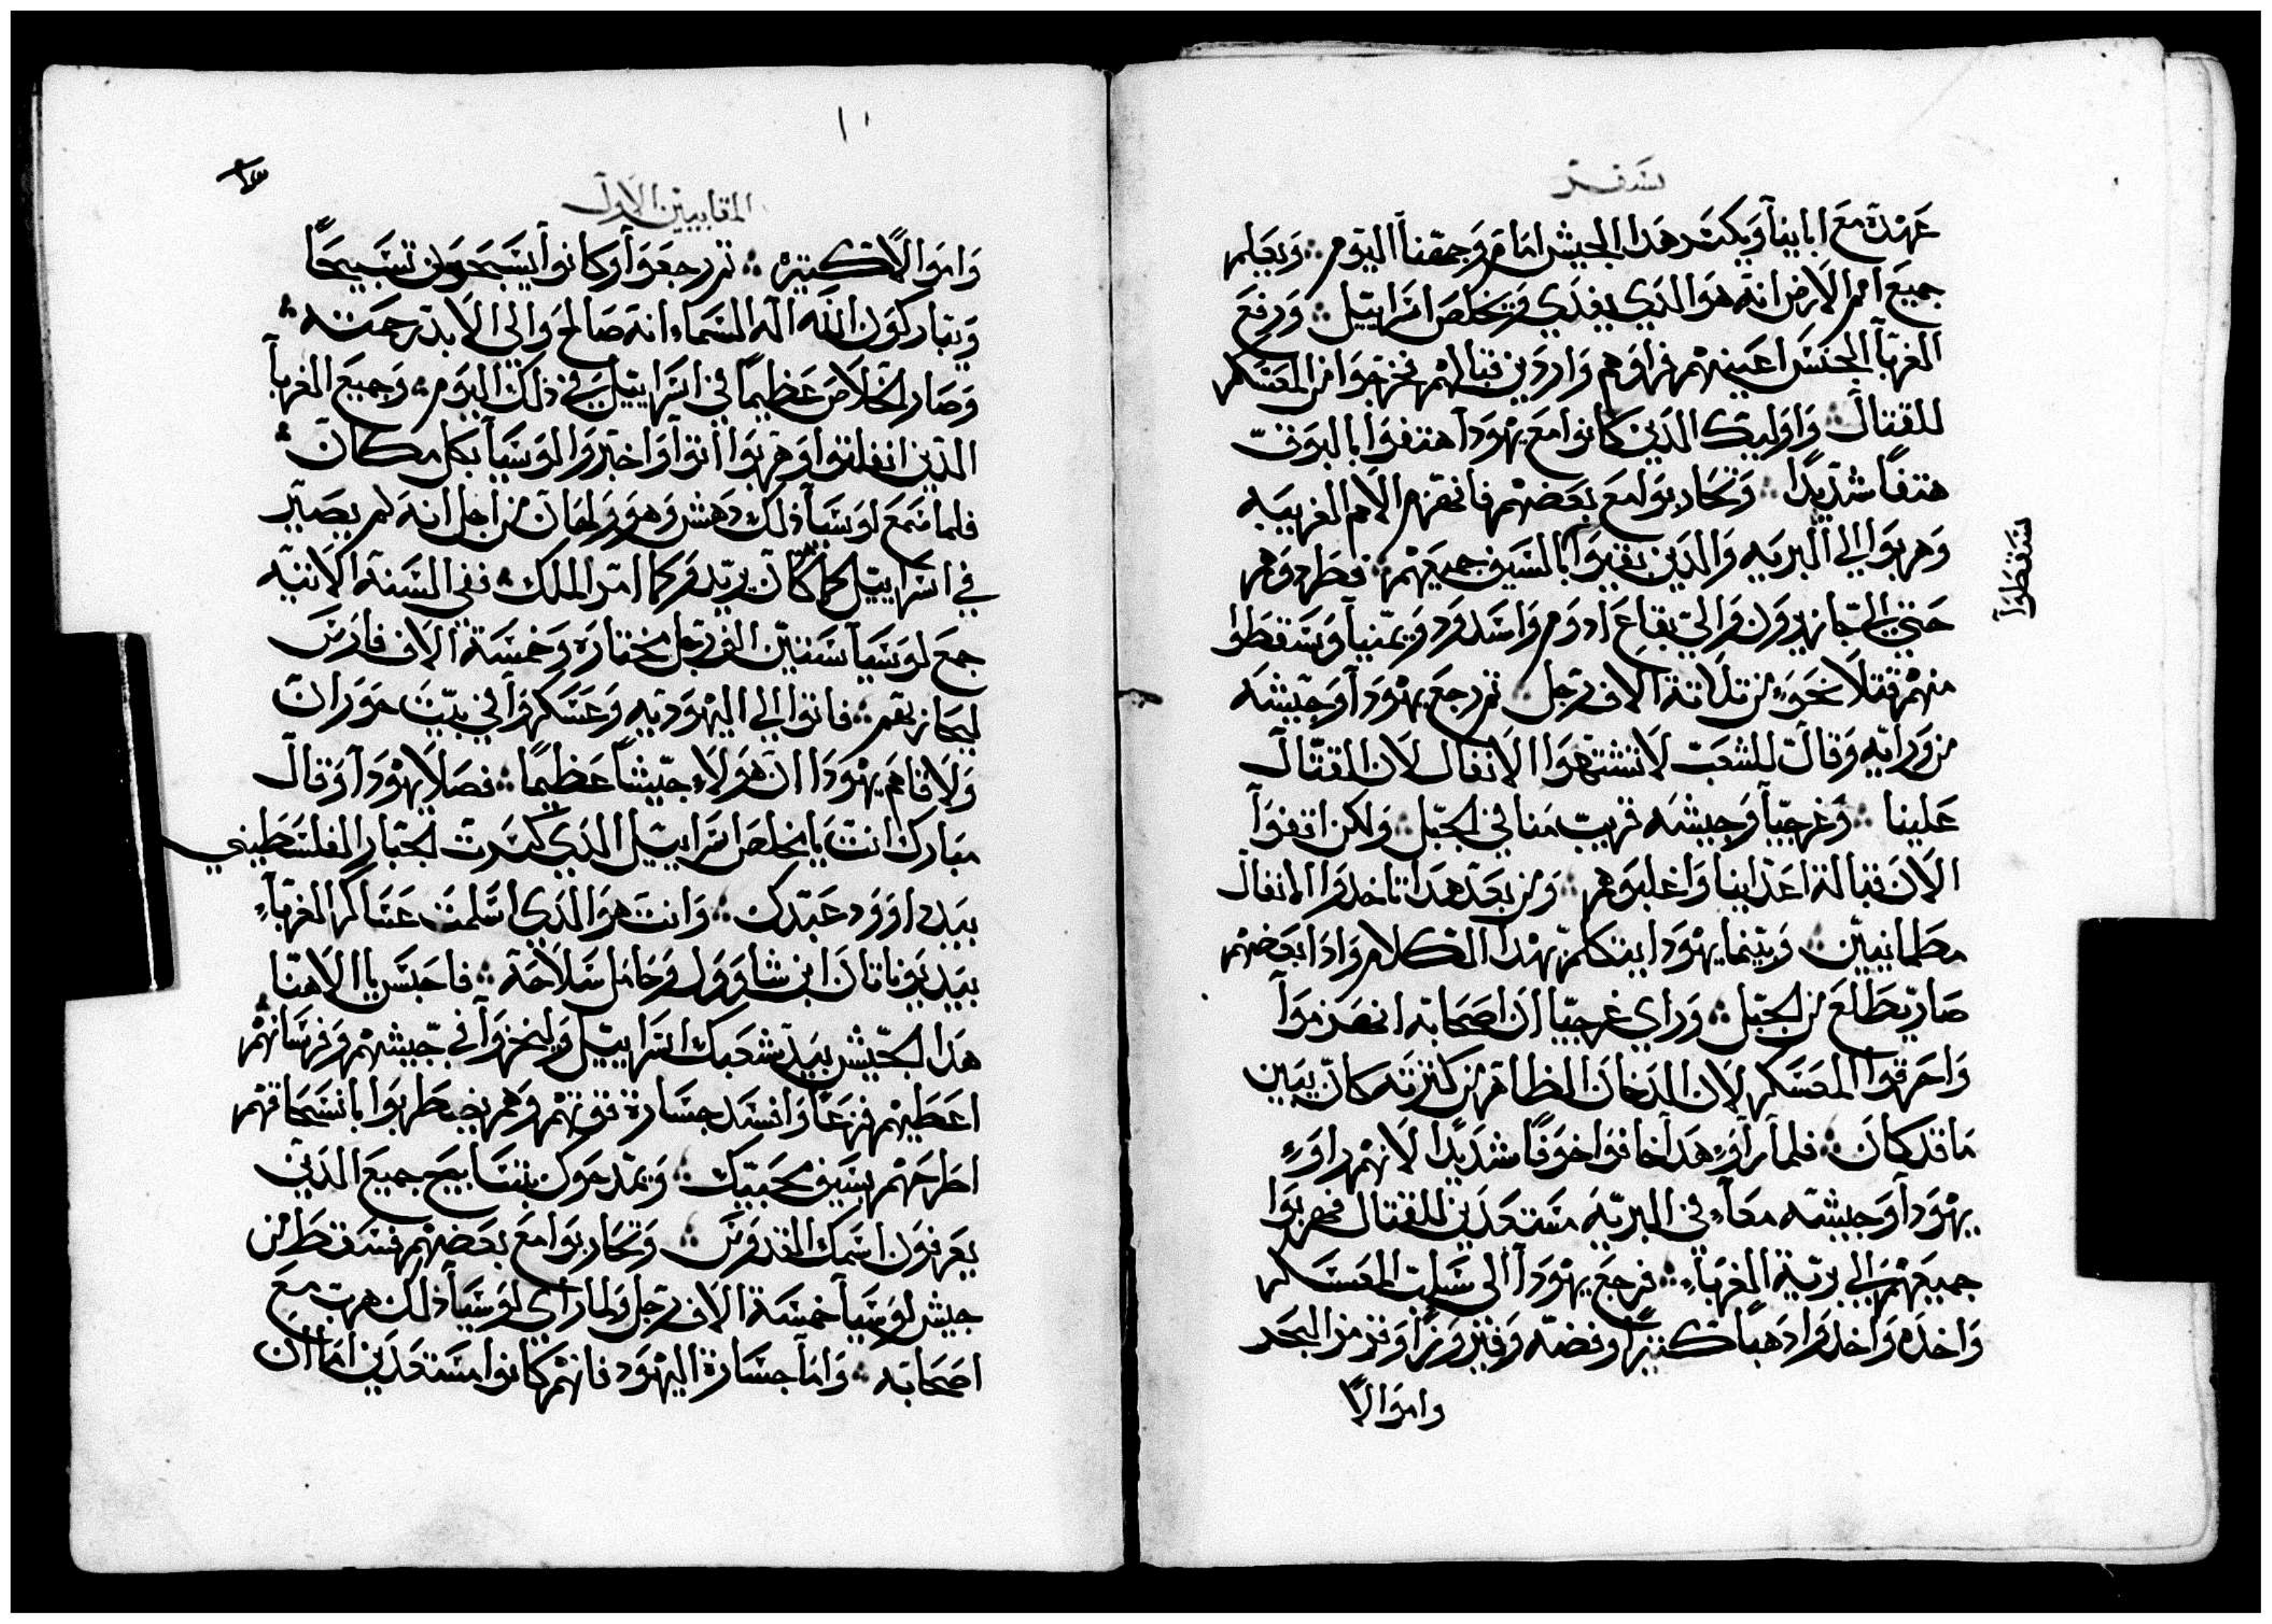 سفر
عهده مع اباينا ويكسر هدا الجيش امام وجهنا اليوم ۞ ويعلم
جميع امم الارض انه هو الدي يفدي ويخلص اسراييل ۞ ورفع
الغربا الجنس اعينهم فراوهم واردين قبالهم فخرجوا من المعسكر
للقتال ۞ واوليك الدين كانوا مع يهودا هتفوا بالبوق
هتفا شديدا ۞ وتحاربوا مع بعضهم فانهزم الامم الغريبه
وهربوا الي البريه والدين بقيوا بالسيف جميعهم ۞ فطردوهم
حتي الي جازيرون والي بقاع ادوم واسدود ويمنيا وسقطوا
سقطوا
منهم قتلا نحو من تلاتة الاف رجل ۞ تم رجع يهودا وجيشه
من ورايه وقال للشعب لا تشتهوا الانفال لان القتال
علينا ۞ وغرجيا وجيشه قريب منا في الجبل ۞ ولكن اقفوا
الان قبالة اعداينا واغلبوهم ۞ ومن بعد هدا تاخدوا الانفال
مطمانيين ۞ وبينما يهودا يتكلم بهدا الكلام وادا بعضهم
صار يطلع من الجبل ۞ وراي غرجيا ان اصحابه انهزموا
واحرقوا المعسكر لان الدخان الظاهر من كترته كان يبين
ما قد كان ۞ فلما راوا هدا خافوا خوفا شديدا لانهم راوا
يهودا وجيشه معا في البريه مستعدين للقتال فهربوا
جميعهم الي برية الغربا ۞ فرجع يهودا الي سلب المعسكر
واخده واخدوا دهبا كتيرا وفضه وفيروزا وفرمز البحر
واموالا
المقابيين الاول
واموالا كتيره ۞ تم رجعوا وكانوا يسبحون تسبيحا
ويباركون الله اله السماء انه صالح والي الابد رحمته ۞
وصار الخلاص عظيما في اسراييل في ذلك اليوم ۞ وجميع الغربا
الدين انفلتوا وهربوا اتوا واخبروا لوسيا بكل مكان ۞
فلما سمع لوسيا ذلك دهش وهو ولهان من اجل انه لم يصير
في اسراييل كما كان يريد وكما امر الملك ۞ ففي السنة الاتيه
جمع لوسيا ستين الف رجل مختاره وخمسة الاف فارس
ليحاربهم ۞ فاتوا الي اليهوديه وعسكروا في بيت حوران
ولاقاهم يهودا ان هولاء جيشا عظيما ۞ فصلا يهودا وقال
مبارك انت يا مخلص اسراييل الدي كسرت الجبار الفلسطيني
بيد داوود عبدك ۞ وانت هو الدي اسلمت عساكر الغرباء
بيد يوناتان ابن شاوول وحامل سلاحه ۞ فاحبس يا الاهنا
هدا الجيش بيد شعبك اسراييل وليخزوا في جيشهم وفرسانهم
اعطيهم فزعا وافسد جسارة قوتهم وهم يضطربوا بانسحاقهم
اطرحهم بسيف محبيك ۞ ويمدحوك بتسابيح جميع الدين
يعرفون اسمك القدوس ۞ وتحاربوا مع بعضهم فسقط من
جيش لوسيا خمسة الاف رجل ولما راي لوسيا ذلك هرب مع
اصحابه ۞ واما جسارة اليهود فانهم كانوا مستعدين اما ان